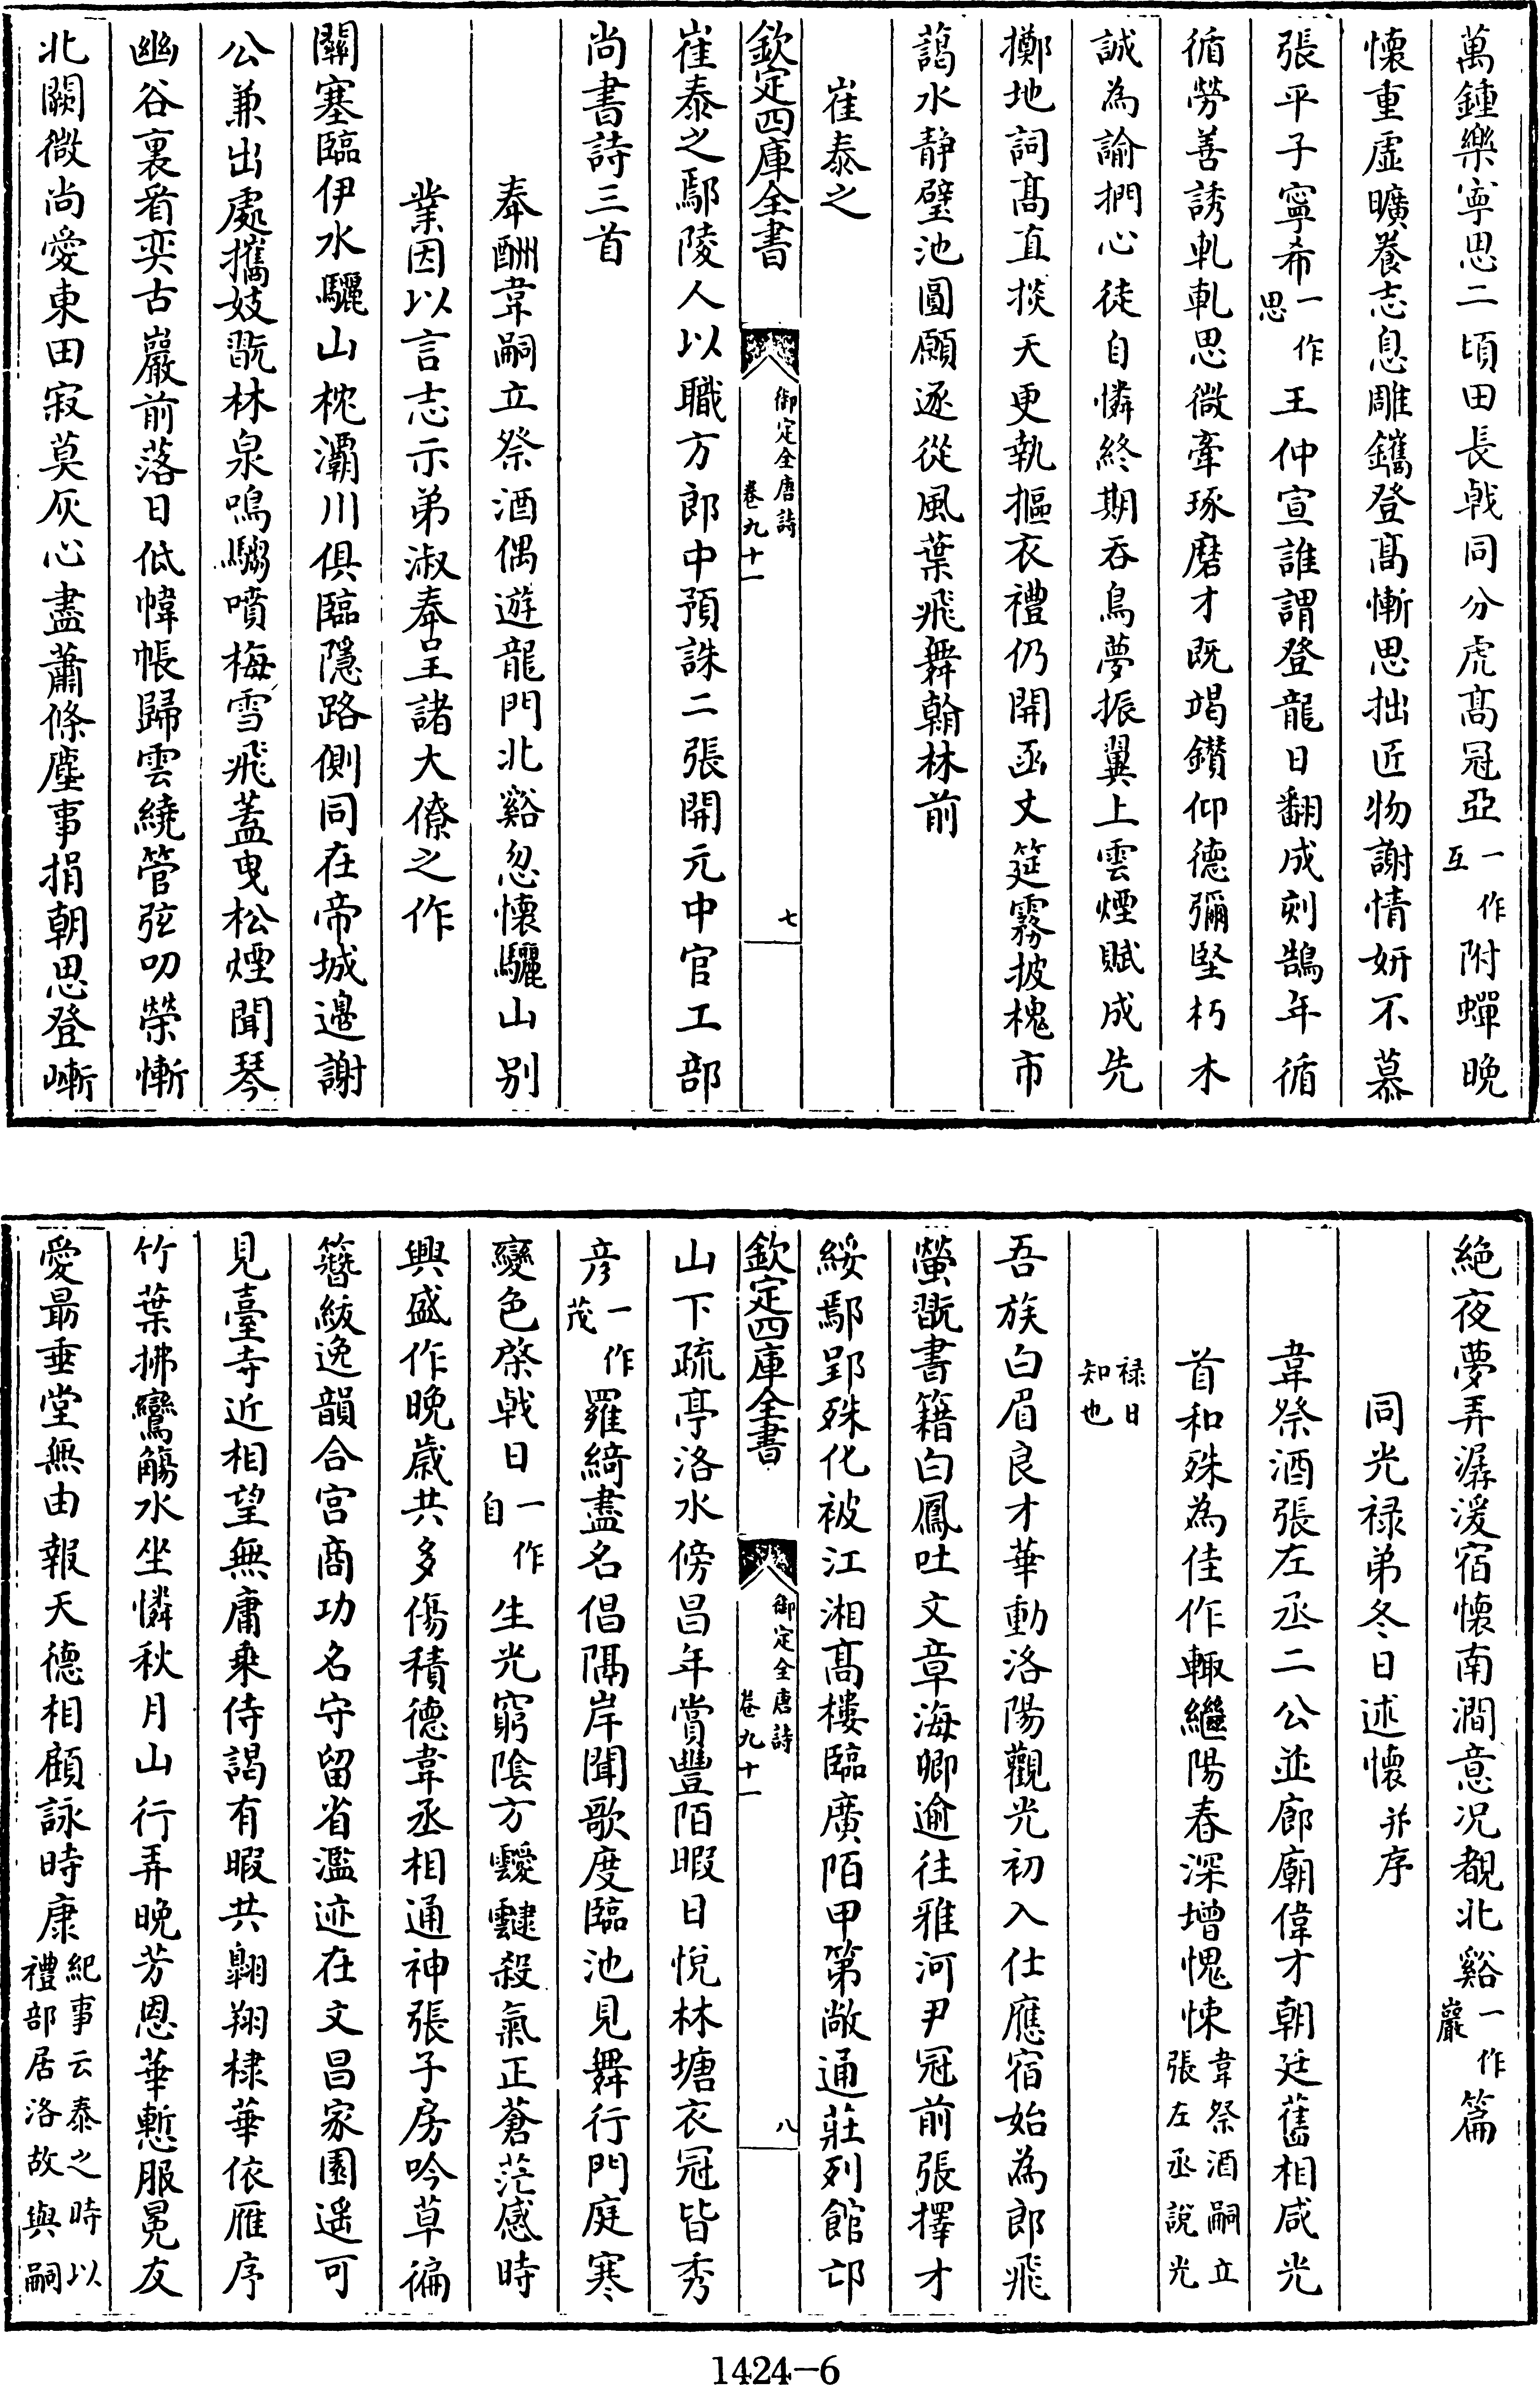 萬鍾樂寧思二頃田長戟同分虎髙冠亞一作互附蟬晚
懷重虚曠養志息雕鐫登髙慚思拙匠物謝情妍不慕
張平子寧希一作思王仲宣誰謂登龍日翻成刻鵠年循
循勞善誘軋軋思微牽琢磨才既竭鑚仰德彌堅朽木
誠為諭捫心徒自憐終期吞鳥夢振翼上雲煙賦成先
擲地詞髙直掞天更執摳衣禮仍開函丈筵霧披槐市
藹水静璧池圓願逐從風葉飛舞翰林前
崔泰之
欽定四庫全書
御定全唐詩
卷九十一
七
崔泰之鄢陵人以職方郎中預誅二張開元中官工部
尚書詩三首
奉酬韋嗣立祭酒偶遊龍門北谿忽懷驪山别
業因以言志示弟淑奉呈諸大僚之作
闗塞臨伊水驪山枕灞川俱臨隱路側同在帝城邊謝
公兼出處攜妓翫林泉鳴騶噴梅雪飛蓋曳松煙聞琴
幽谷裏看奕古巖前落日低幃帳歸雲繞管弦叨榮慚
北闕微尚愛東田寂莫灰心盡蕭條塵事捐朝思登嶃
絶夜夢弄潺湲宿懷南澗意况覩北谿一作巖篇
同光禄弟冬日述懷并序
韋祭酒張左丞二公並廊廟偉才朝廷舊相咸光
首和殊為佳作輙繼陽春深增愧悚韋祭酒嗣立張左丞説光
禄日知也
吾族白眉良才華動洛陽觀光初入仕應宿始為郎飛
螢翫書籍白鳳吐文章海卿逾往雅河尹冠前張擇才
綏鄢郢殊化被江湘髙樓臨廣陌甲第敞通莊列館邙
欽定四庫全書
御定全唐詩
卷九十一
八
山下疏亭洛水傍昌年賞豐陌暇日悅林塘衣冠皆秀
彦一作茂羅綺盡名倡隔岸聞歌度臨池見舞行門庭寒
變色棨戟日一作自生光窮陰方靉靆殺氣正蒼茫感時
興盛作晚歳共多傷積德韋丞相通神張子房吟草徧
簪紱逸韻合宫商功名守留省濫迹在文昌家園遥可
見臺寺近相望無庸乗侍謁有暇共翺翔棣華依雁序
竹葉拂鸞觴水坐憐秋月山行弄晚芳恩華慙服冕友
愛最垂堂無由報天德相顧詠時康紀事云泰之時以禮部居洛故與嗣
1424-6